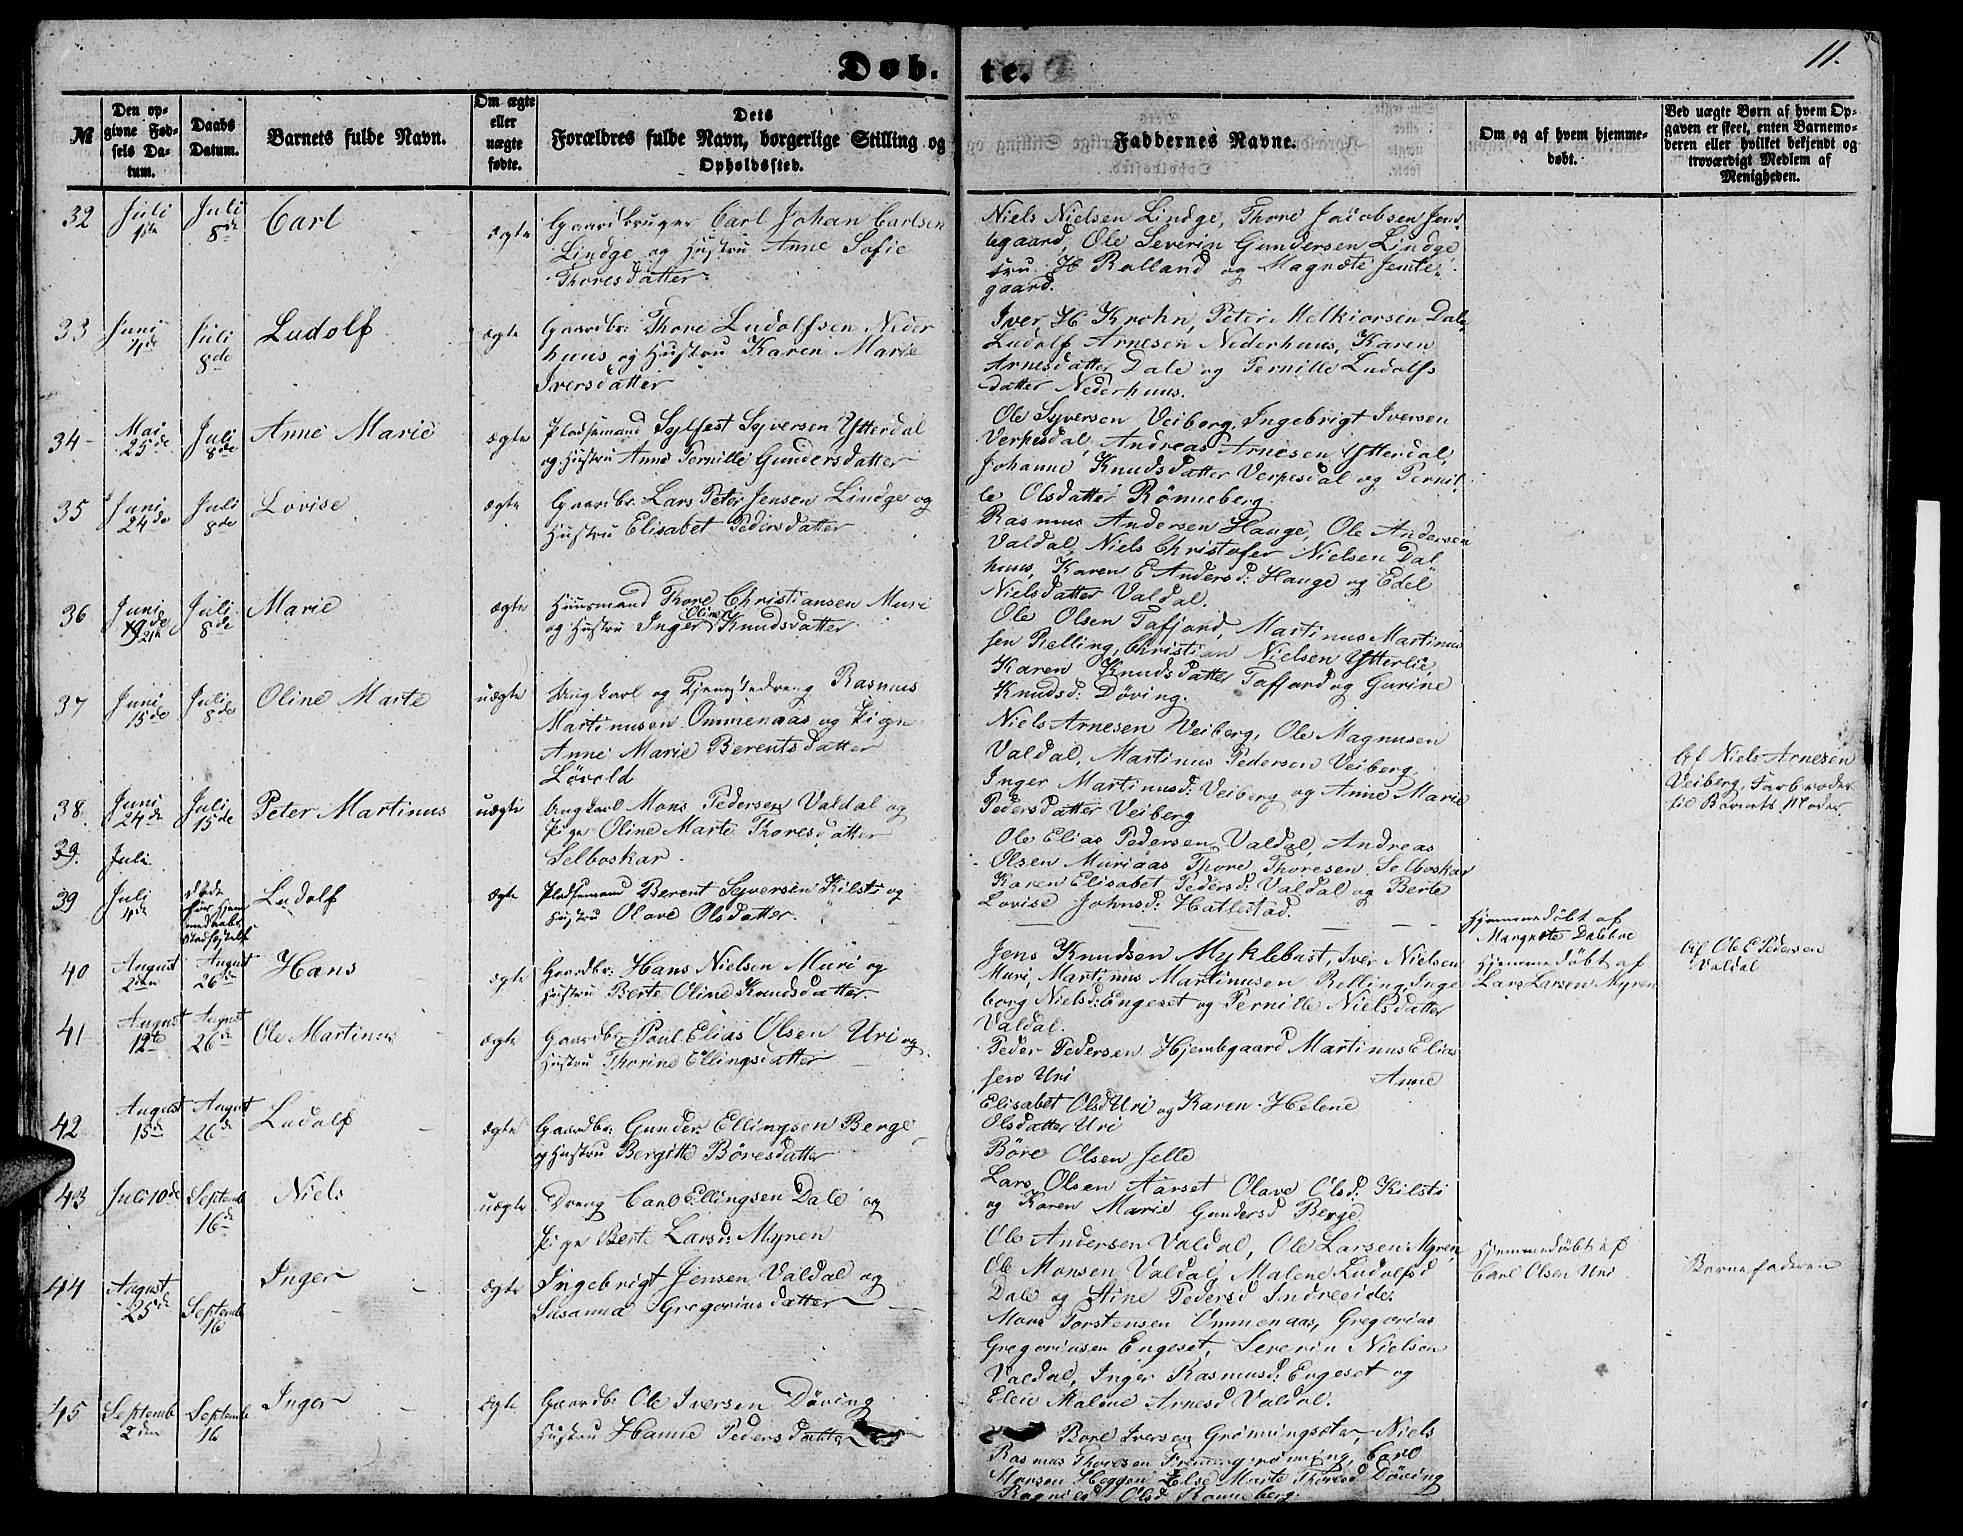 Døb-
te.
11.
№
Den op-
givne Fød-
sels Da-
tum.
Daabs
Datum.
Barnets fulde Navn.
Om ægte
eller
uægte
fødte.
Dets
Forældres fulde Navn, borgerlige Stilling og
Opholdssted.
Faddernes Navne.
Om og af hvem hjemme-
døbt.
Ved uægte Børn af hvem Op-
gaven er skeet, enten Barnemo-
deren eller hvilket bekjendt og
troværdigt Medlem af
Menigheden.
32
Juli
1ste
Juli
8de
Carl
ægte
Gaardbruger Carl Johan Carlsen
Lindge og Hustru Anne Sofie
Thoresdatter
Niels Nielsen Lindge, Thore Jacobsen Jem-
tegaard, Ole Severin Gundersen Lindge
fru H Rolland og Magnete Jemte-
gaard.
33
Juni
4de
Juli
8de
Ludolf
ægte
Gaardbr: Thore Ludolfsen Neder
huus og Hustru Karen Marie
Iversdatter
Iver H Krohn, Peter Melkiorsen Dale,
Ludolf Arnesen Nederhuus, Karen
Arnesdatter Dale og Pernille Ludolfs
datter Nederhuus.
34
Mai
25de
Juli
8de
Anne Marie
ægte
Pladsemand Sylfest Syversen Ytterdal
og Hustru Anne Pernille Gundersdatter
Ole Syversen Veiborg, Ingebrigt Iversen
Verpesdal, Andreas Arnesen Ytterdal,
Johanne Knudsdatter Verpesdal og Pernil-
le Olsdatter Rönneberg.
35
Juni
24de
Juli
8de
Lovise
ægte
Gaardbr: Lars Peter Jensen Lindge og
Hustru Elisabet Pedersdatter
Rasmus Andersen Hauge, Ole Andersen
Valdal, Niels Christofer Nielsen Dal-
huus, Karen E Andersd: Hauge og Edel
Nielsdatter Valdal.
36
Juni
21de
Juli
8de
Marie
ægte
Huusmand Thore Christiansen Muri
og Hustru Inger Oline Knudsdatter
Ole Olsen Tafjord, Martinus Martinus
sen Relling, Christian Nielsen Ytterlie,
Karen Knudsdatter Tafjord og Gurine
Knudsd: Döving.
37
Juni
15de
Juli
8de
Oline Marte
uægte
Ungkarl og Tjenestedreng Rasmus
Martinusen Ommenaas og Pigen
Anne Marie Berentsdatter
Lövold
Niels Arnesen Veiberg, Ole Magnusen
Valdal, Martinus Pedersen Veiberg,
Inger Martinusd: Veiberg og Anne Marie
Pedersdatter Veiberg
Af Niels Arnesen
Veiberg, Farbroder
til Barnets Moder
38.
Juni
24de
Juli
15de
Peter Martinus
uægte
Ungkarl Mons Pedersen Valdal og
Pige Oline Marte Thoresdatter
Selboskar
Ole Elias Pedersen Valdal, Andreas
Olsen Muriaas Thore Thoresen Selboskar
Karen Elisabet Pedersd: Valdal og Berte
Lovise Johnsd: Hatlestad.
39.
Juli
39
Juli
4de
døde
før Hjem
medaabs
Stadfæstelse
Ludolf
ægte
Pladsemand Berent Syversen Kilsti og
Hustru Olave Olsdatter.
Hjemmedöbt af
Margrete Daleboe
40
August
2den
August
26de
Hans
ægte
Gaardbr: Hans Nielsen Muri og
Hustru Berte Oline Knudsdatter.
Jens Knudsen Myklebust, Iver Nielsen
Muri, Martinus Martinusen Relling, Inge
borg Nielsd: Engeset og Pernille Nielsdatter
Valdal.
Hjemmedöbt af
Lars Larsen Myren
Af Ole E Pedersen
Valdal
41
August
12te
August
26de
Ole Martinus
ægte
Gaardbr: Poul Elias Olsen Uri og
Hustru Thorine Ellingsdatter
Peder Pedersen Hjembgaard Martinus Elias
sen Uri Anne
Elisabet Olsd Uri og Karen Helene
Olsdatter Uri
42
August
15de
August
26de
Ludolf
ægte
Gaardbr: Gunder Ellingsen Berge
og Hustru Bergitte Böresdatter
Böre Olsen Selle
Lars Olsen Aarset Olave Olsd: Kilsti
og Karen Marie Gundersd Berge
43
Juli 10de
Septemb
16de
Niels
uægte
Dreng Carl Ellingsen Dale og
Pige Berte Larsd: Myren
Ole Andersen Valdal, Ole Larsen Myren,
Ole Monsen Valdal, Malene Ludolfsd
Dale og Stine Pedersd Indreeide.
Hjemmedöbt af
Carl Olsen Uri
Barnefaderen
44
August
25de
Septemb
16
Inger
ægte
Ingebrigt Jensen Valdal og
Susanna Gregoriusdatter
Mons Torstensen Ommenaas, Gregorius
Gregoriusen Engeset, Severin Nielsen
Valdal, Inger Rasmusd: Engeset og
Elen Malene Arnesd Valdal.
45
Septemb
2den
Septemb
16
Inger
ægte
Gaardb: Ole Iversen Döving
Hustru Hanne Pedersdatter
Bore Iversen Grönningsæter, Niels
Rasmus Thoresen Carl
Monsen Heggen Else Marte Thoresd Döving
Ragnild Olsd Rönneberg.